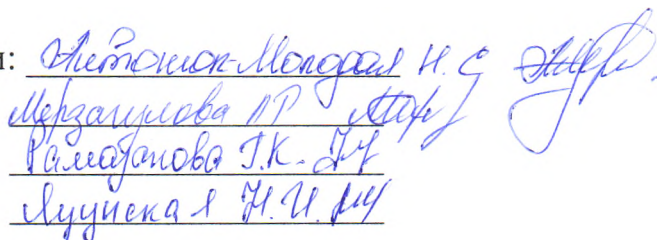 и: Антонюк-Молодая Н. С.
Мерзагулова Л Р
Рамазанова Г.К.
Яцунская Н. И.